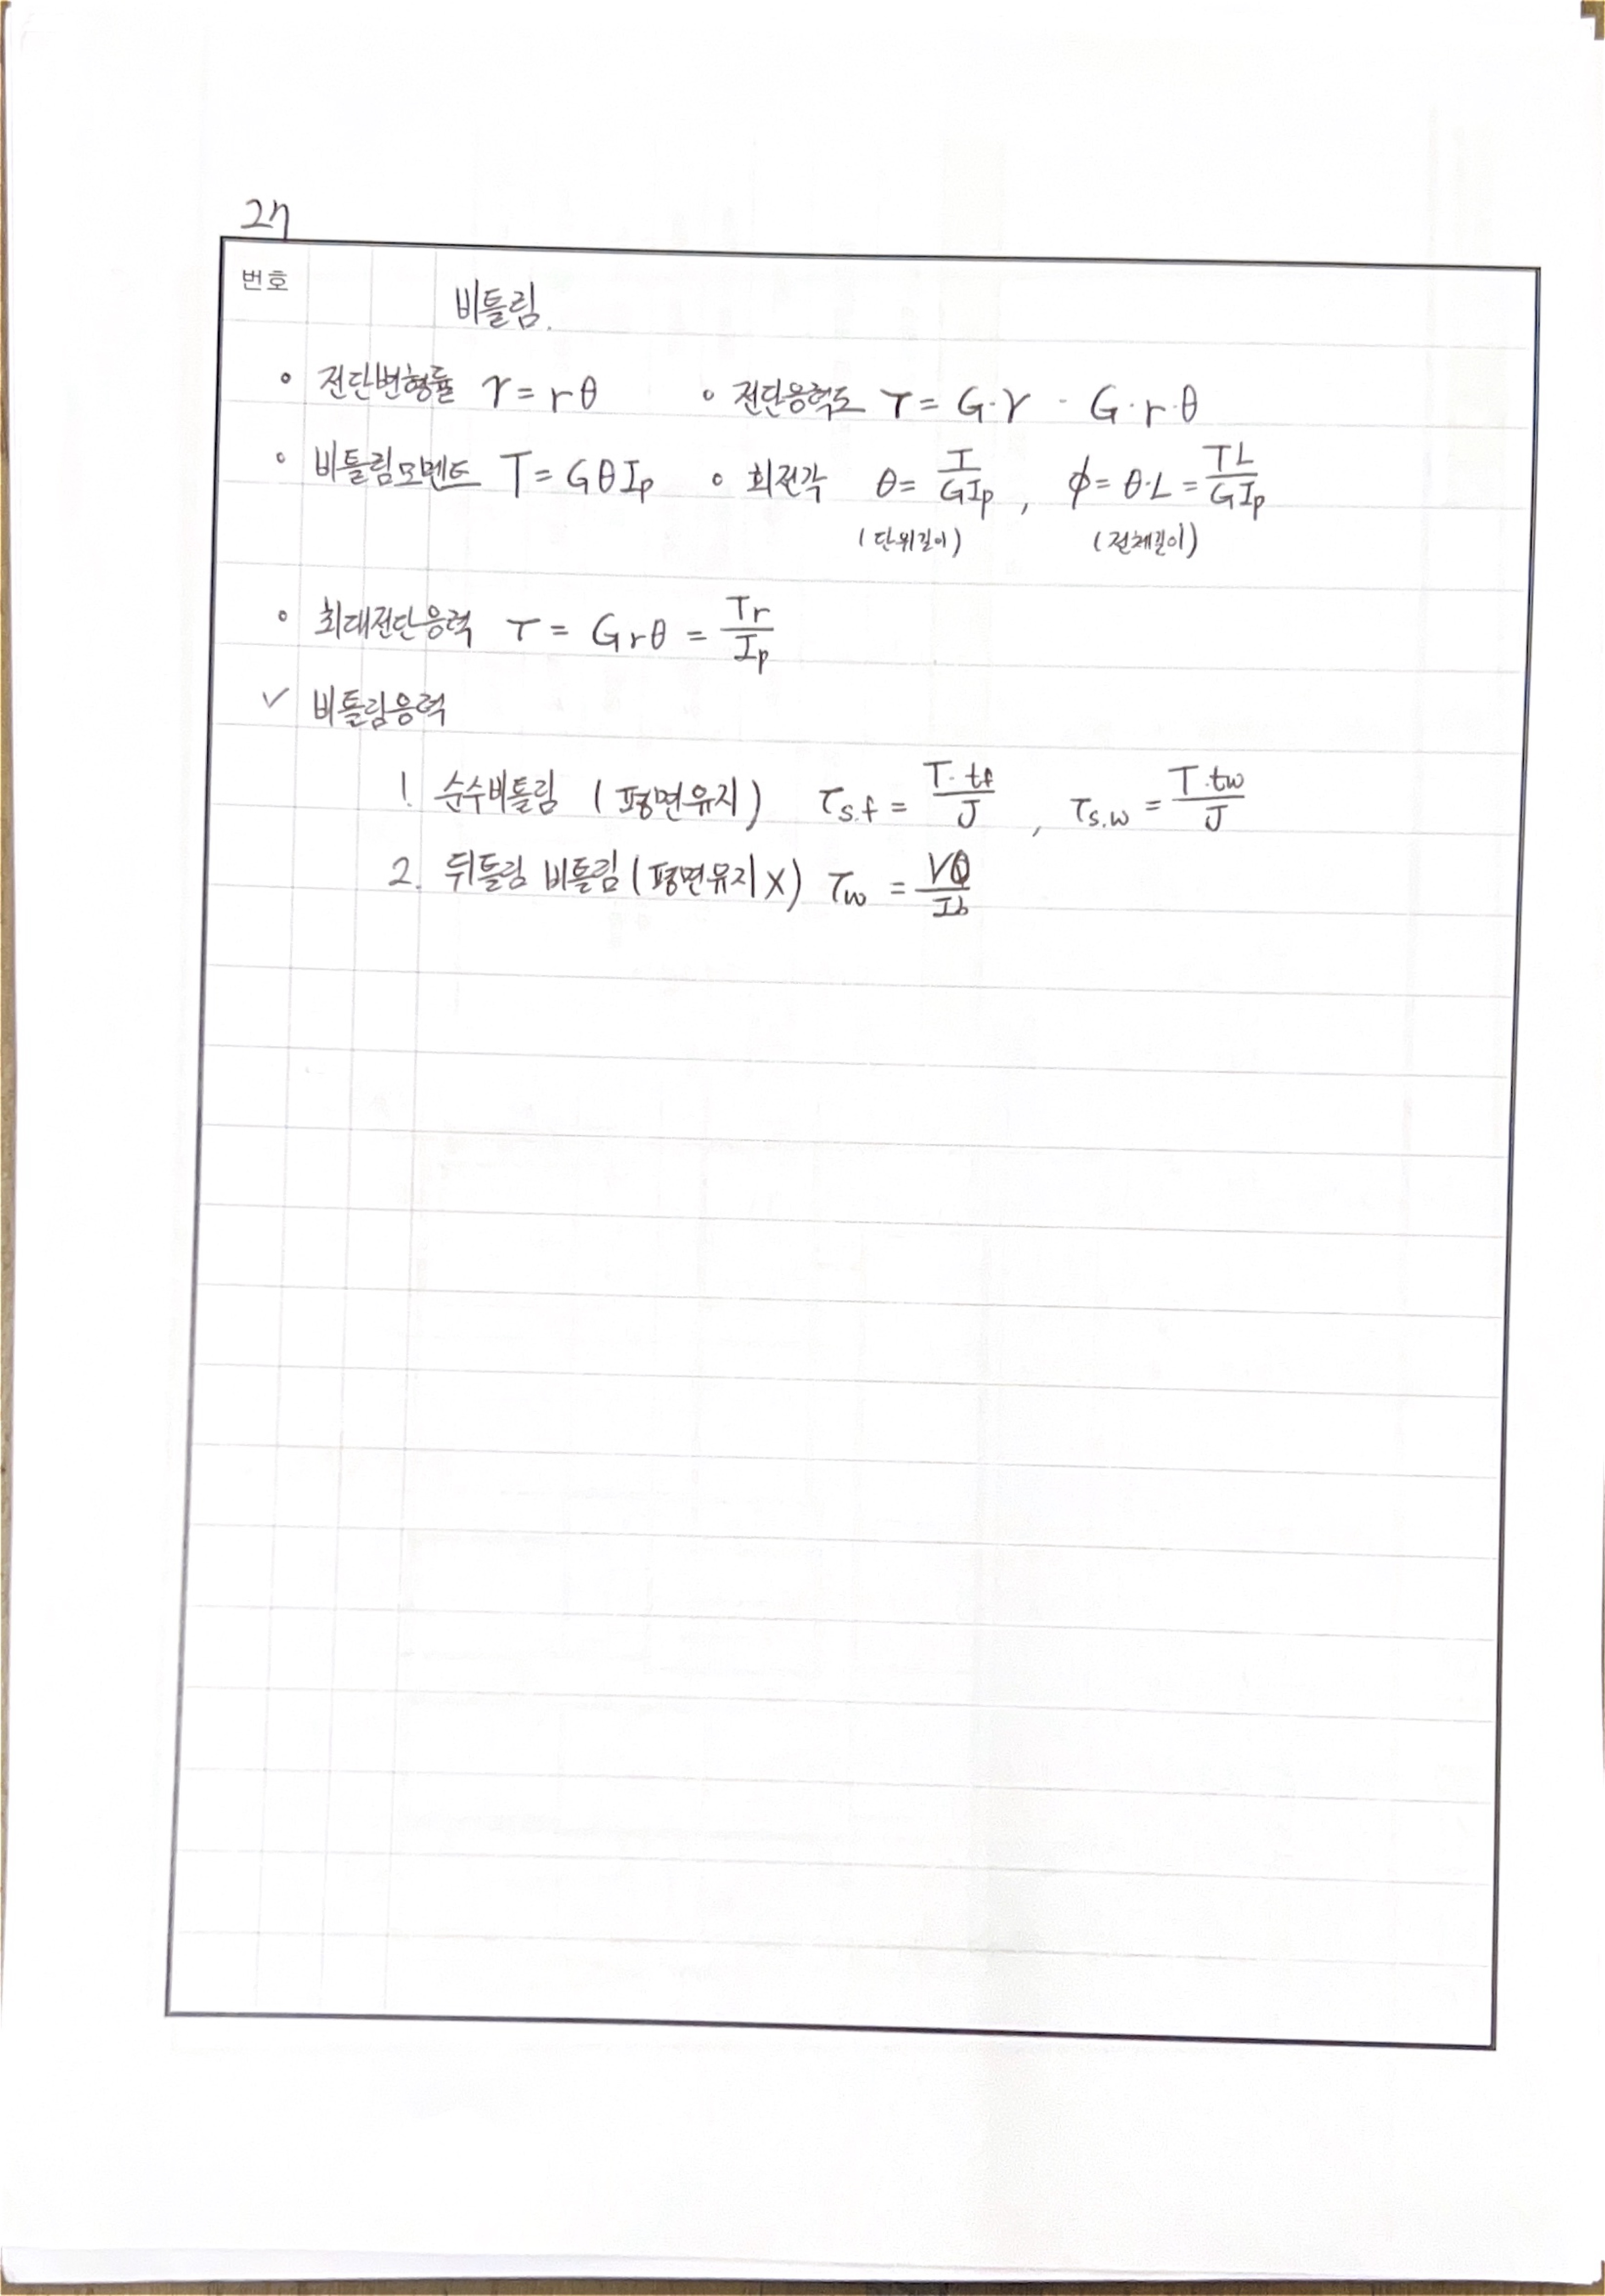 27
번호
비틀림.
◦ 전단변형률 γ = rθ ◦ 전단응력도 τ = G·γ - G·r·θ
◦ 비틀림모멘트 T = GθIp ◦ 회전각 θ = T/GIp , ϕ = θ·L = TL/GIp
(단위길이) (전체길이)
◦ 최대전단응력 τ = Grθ = Tr/Ip
✓ 비틀림응력
1. 순수비틀림 (평면유지) τs.f = T·tf/J , τs.w = T·tw/J
2. 뒤틀림 비틀림 (평면유지 X) τw = VQ/Ib